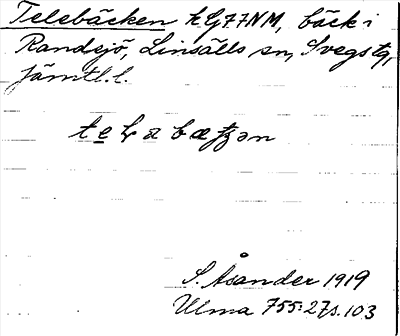 Telebäcken kG77NM, bäck i
Randsjö, Linsälls sn, Svegs tg,
Jämtl. l.
S. Åsander 1919
Ulma 755:27, s. 103